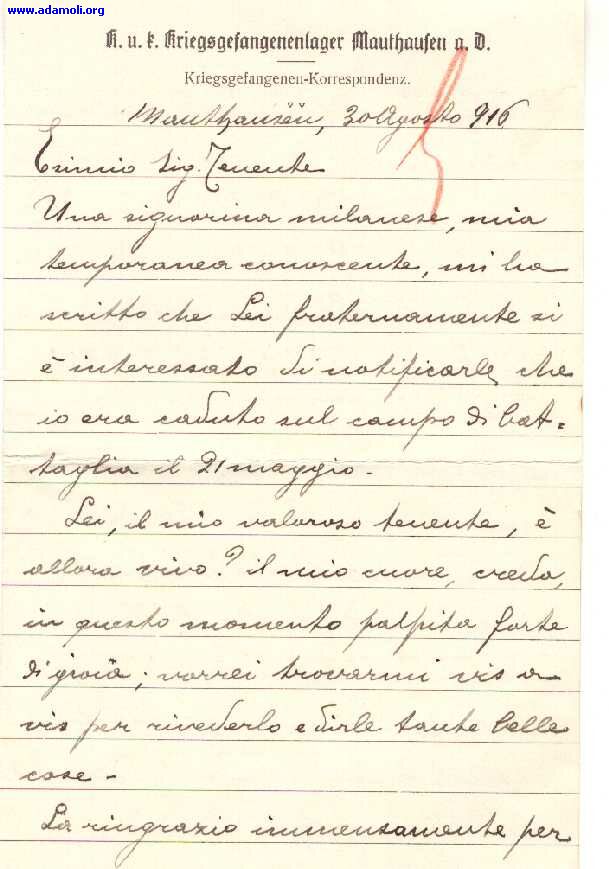 www.adamoli.org
K. u. k. Kriegsgefangenenlager Mauthausen a. D.
Kriegsgefangenen-Korrespondenz.
Mauthausen, 30 Agosto 916
Esimio Sig. Tenente
Una signorina milanese, mia
temporanea conoscente, mi ha
scritto che Lei fraternamente si
è interessato di notificarle che
io era caduto sul campo di bat=
taglia il 21 maggio.
Lei, il mio valoroso tenente, è
allora vivo? il mio cuore, creda,
in questo momento palpita forte
di gioia; vorrei trovarmi vis a
vis per rivederlo e dirle tante belle
cose -
La ringrazio immensamente per